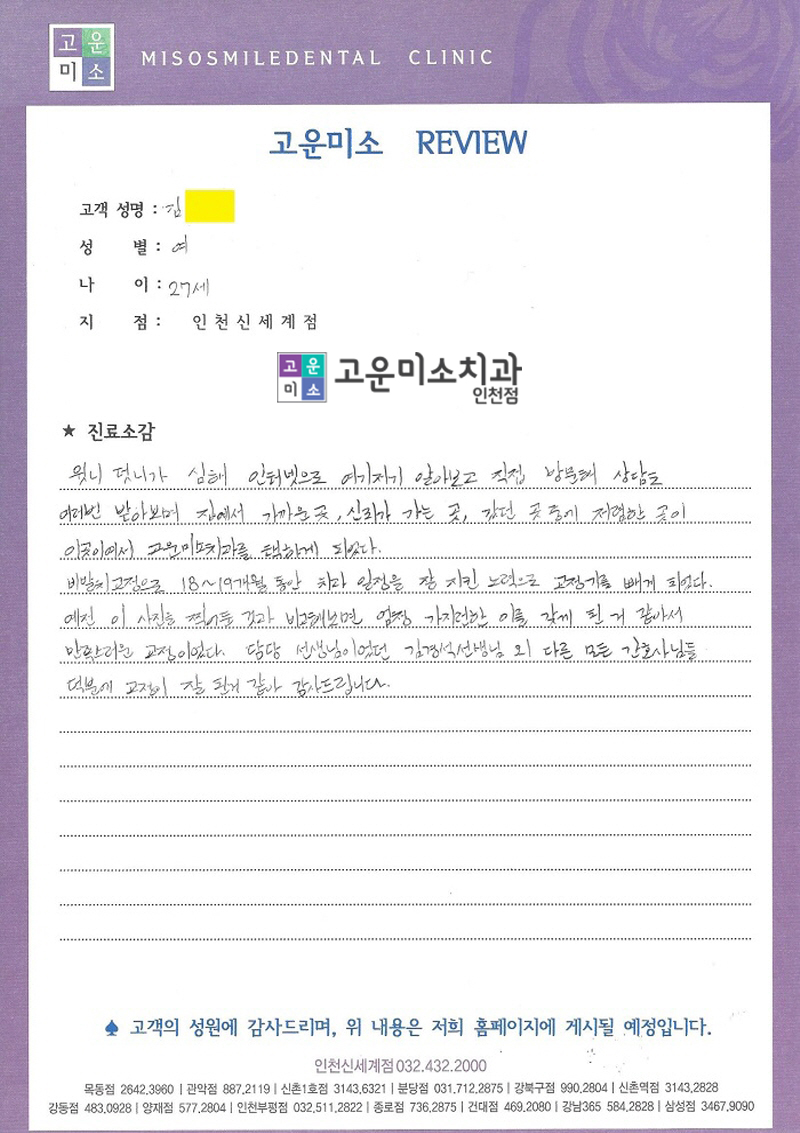 고운
미소
MISOSMILEDENTAL CLINIC
고운미소 REVIEW
고객 성명 : 김
성 별 : 여
나 이 : 27세
지 점 : 인천신세계점
고운
미소
고운미소치과
인천점
★ 진료소감
윗니 덧니가 심해 인터넷으로 여기저기 알아보고 직접 방문해 상담도
여러번 받아보며 집에서 가까운 곳, 신뢰가 가는 곳, 갔던 곳 중에 저렴한 곳이
이곳이여서 고운미소치과를 택하게 되었다.
비발치교정으로 18~19개월 동안 치과 일정을 잘 지킨 노력으로 교정기를 빼게 되었다.
예전 이 사진을 찍어둔 것과 비교해보면 엄청 가지런한 이를 갖게 된 거 같아서
만족스러운 교정이었다. 담당 선생님이었던 김경석선생님 외 다른 모든 간호사님들
덕분에 교정이 잘 된거 같아 감사드립니다.
♠ 고객의 성원에 감사드리며, 위 내용은 저희 홈페이지에 게시될 예정입니다.
인천신세계점 032.432.2000
목동점 2642.3960 | 관악점 887.2119 | 신촌1호점 3143.6321 | 분당점 031.712.2875 | 강북구점 990.2804 | 신촌역점 3143.2828
강동점 483.0928 | 양재점 577.2804 | 인천부평점 032.511.2822 | 종로점 736.2875 | 건대점 469.2080 | 강남365 584.2828 | 삼성점 3467.9090